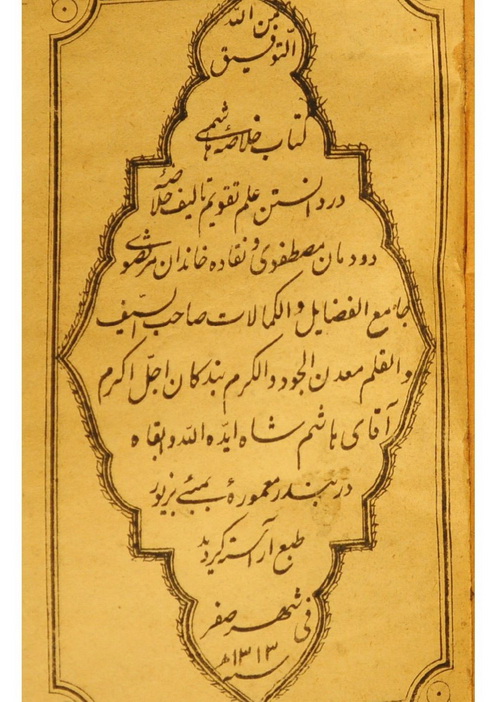 من الله
التوفیق
کتاب خلاصهٔ هاشمی
در دانستن علم تقویم تالیف خلاصهٔ
دودمان مصطفوی و نقاده خاندان مرتضوی
جامع الفضایل والکمالات صاحب السّیف
والقلم معدن الجود والکرم بندکان اجلّ اکرم
آقای هاشم شاه ایده الله وابقاه
در بندر معمورهٔ بمبئے بزیور
طبع آراسته کردید
فی شهر صفر
سنه ۱۳۱۳ھ